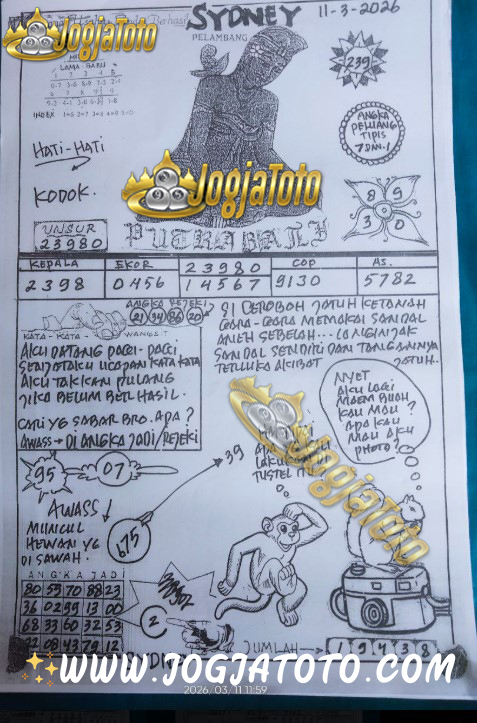 SYDNEY
11-3-2026
PELAMBANG
JOGJATOTO
LAMA - BARU
239
ANGKA
PELUANG
TIPIS
HATI-HATI
KODOK.
JOGJATOTO
8 9
3 0
UNSUR
23980
PUTRA BALI
KEPALA EKOR 23980 COP AS.
2398 0456 14567 9130 5782
ANGKA REJEKI
21 34 86 20
KATA - KATA
AKU DATANG PAGI - PAGI
UCAPAN KATA KATA
AKU TAKKAN PULANG
JIKA BELUM BERHASIL.
CARI YG SABAR BRO. APA?
AWASS → DI ANGKA JADI/REJEKI
SI CEROBOH JATUH KETANAH
GARA - GARA MEMAKAI SANDAL
ANEH SEBELAH...
SANDAL SENDIRI DAN TANGANNYA
TERLUKA AKIBAT JATUH.
NYET
AKU LAGI
MAEM BUAH
KAU MAU?
APA KAU
MAU AKU
PHOTO?
JOGJATOTO
TUSTEL
95
07
39
675
AWASS
MUNCUL
HEWAN YG
DI SAWAH.
ANGKA JADI
80 59 70 88 23
36 02 99 13 00
68 33 60 32 53
22 08 43 79 12
2
JUMLAH → 1 9 4 3 8
WWW.JOGJATOTO.COM
2026/03/11 11:59